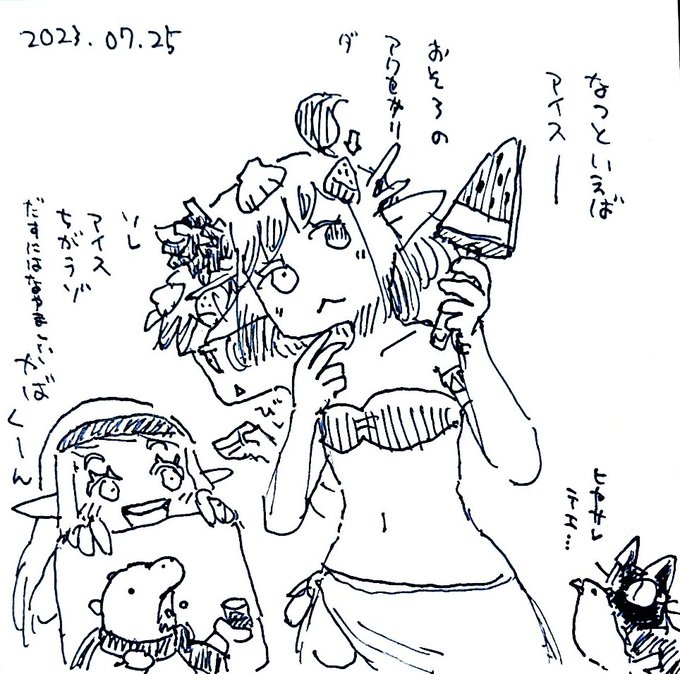 2023.07.25
なつといえば
アイスー
おそろの
アクセサリ
ダ
ソレ
アイス
ちがうゾ
だすにはなやましいかば
くーん
ビシ
ヒヤサレ
テエ…